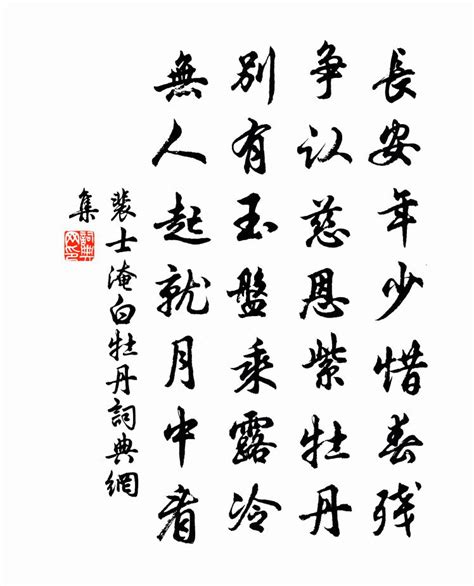 長安年少惜春残
争认慈恩紫牡丹
别有玉盤乘露冷
無人起就月中看
裴士淹白牡丹詞典網
集